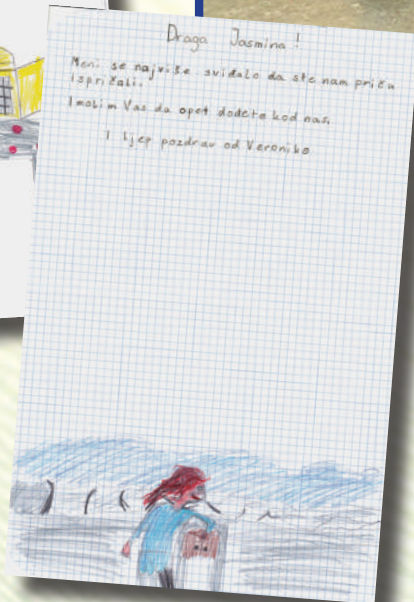 Draga Jasmina!
Meni se najviše sviđalo da ste nam priču
ispričali.
I molim Vas da opet dođete kod nas.
I ljep pozdrav od Veronike